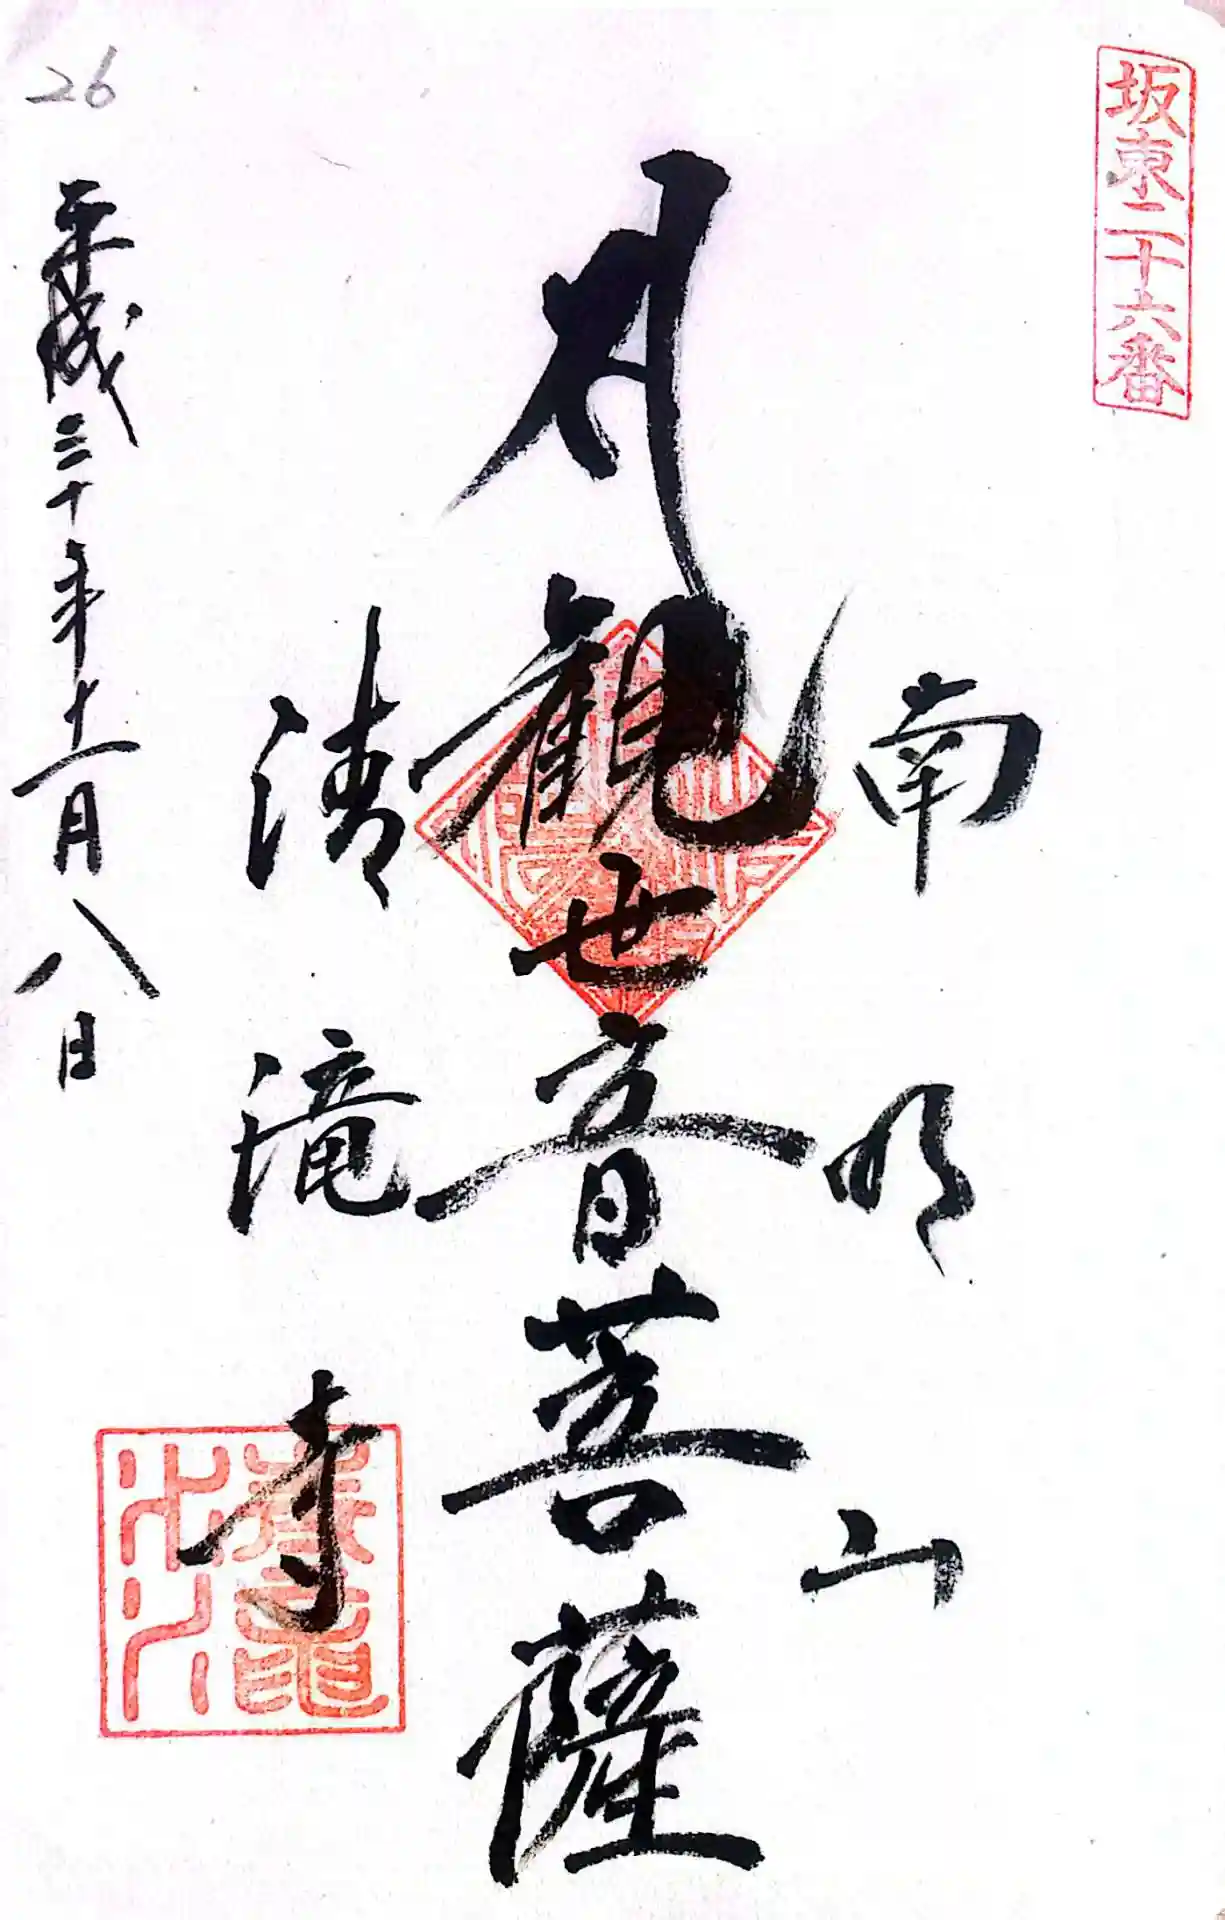 坂東二十六番
南明山
観世音菩薩
清滝寺
平成三十年十一月八日
26